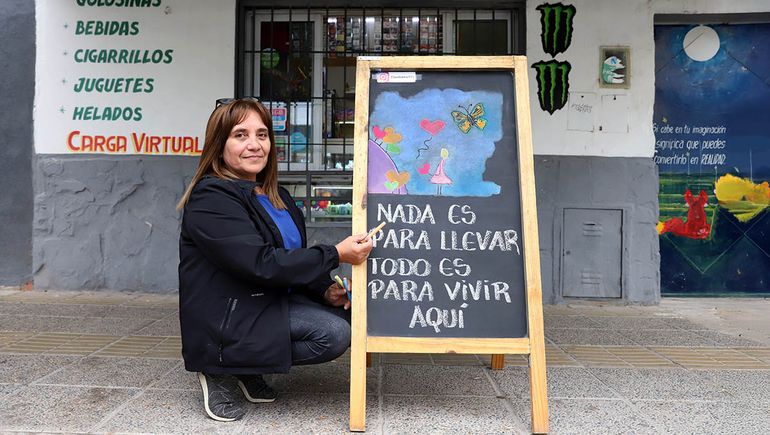 GOLOSINAS
BEBIDAS
CIGARRILLOS
JUGUETES
HELADOS
CARGA VIRTUAL
NADA ES
PARA LLEVAR
TODO ES
PARA VIVIR
AQUÍ
Si cabe en tu imaginación
significa que puedes
convertirlo en REALIDAD.